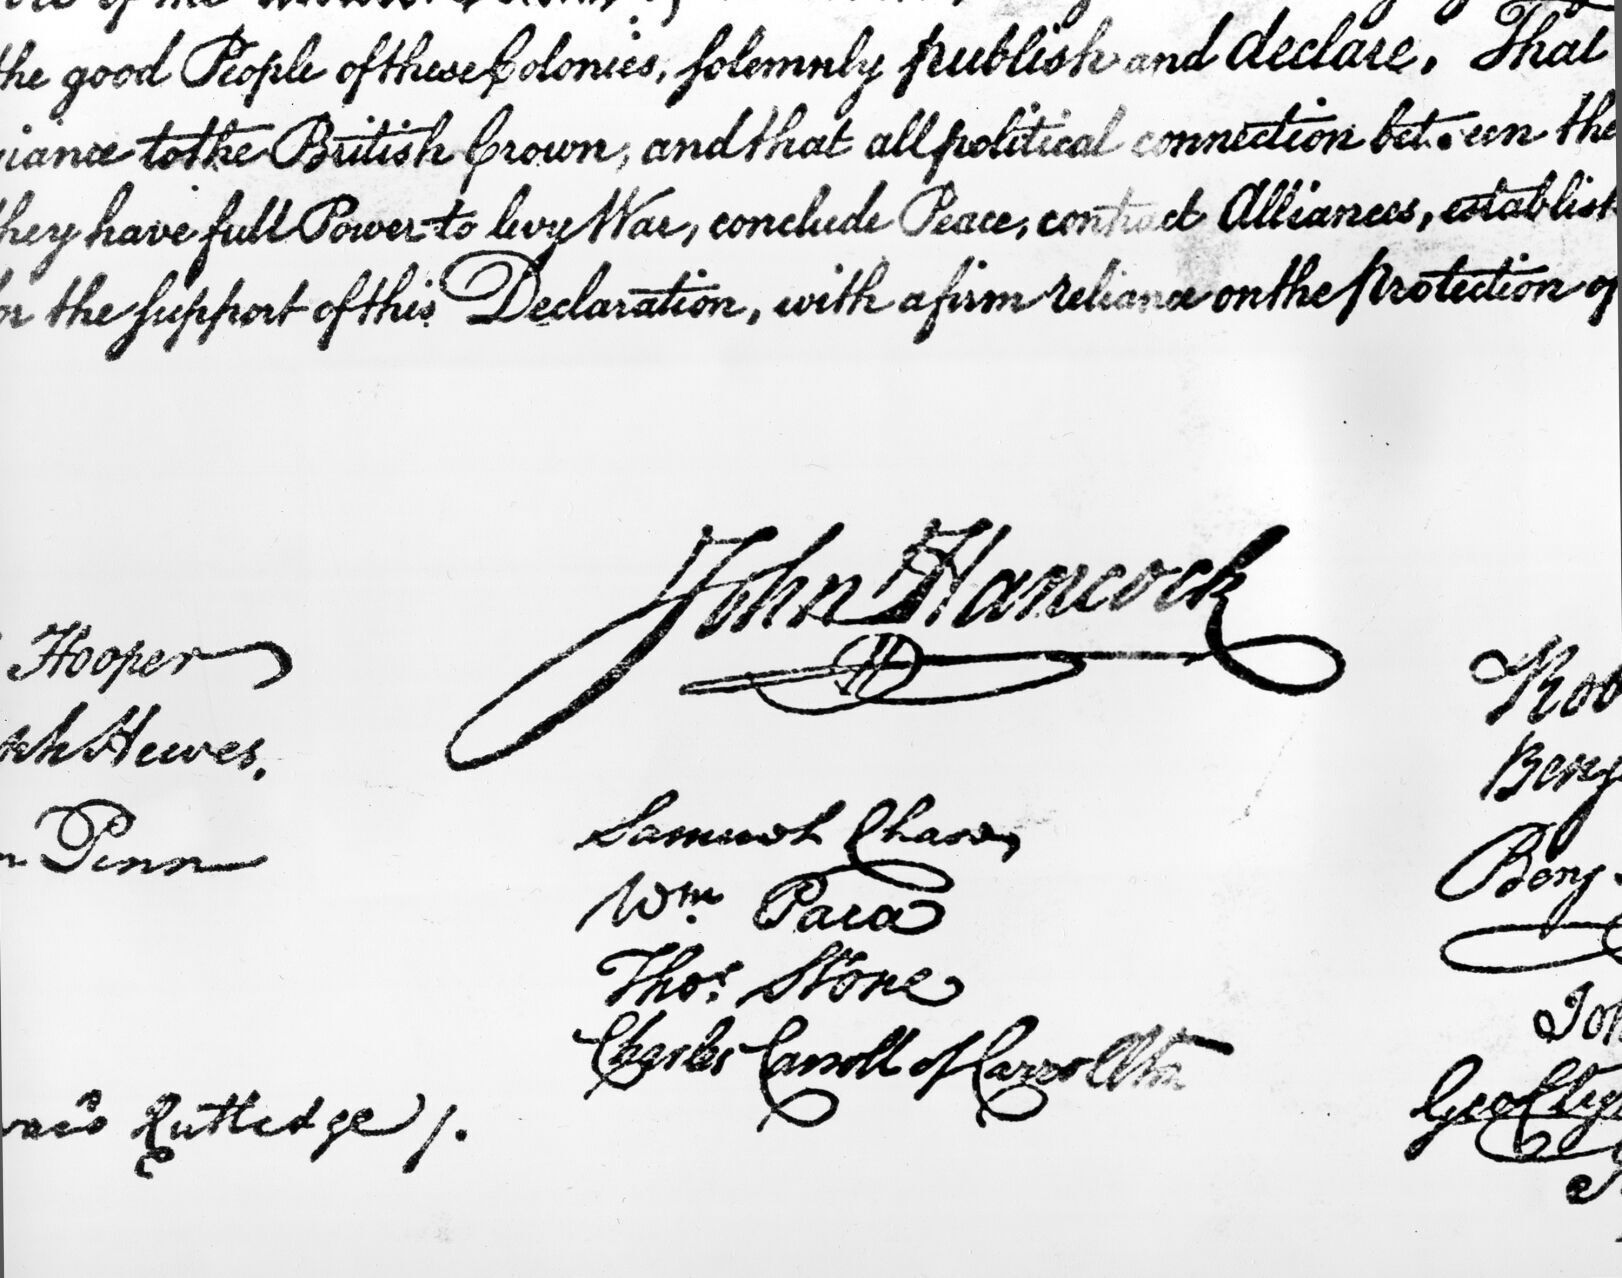 the good People of these Colonies, solemnly publish and declare, That
to the British Crown, and that all political connection between the
they have full Power to levy War, conclude Peace, contract Alliances, establish
for the support of this Declaration, with a firm reliance on the protection of
John Hancock
Hooper
Hewes,
Penn
Samuel Chase
Wm. Paca
Thos. Stone
Charles Carroll of Carrollton
Rutledge /.
Rob
Benj
Benj
Joh
Geo